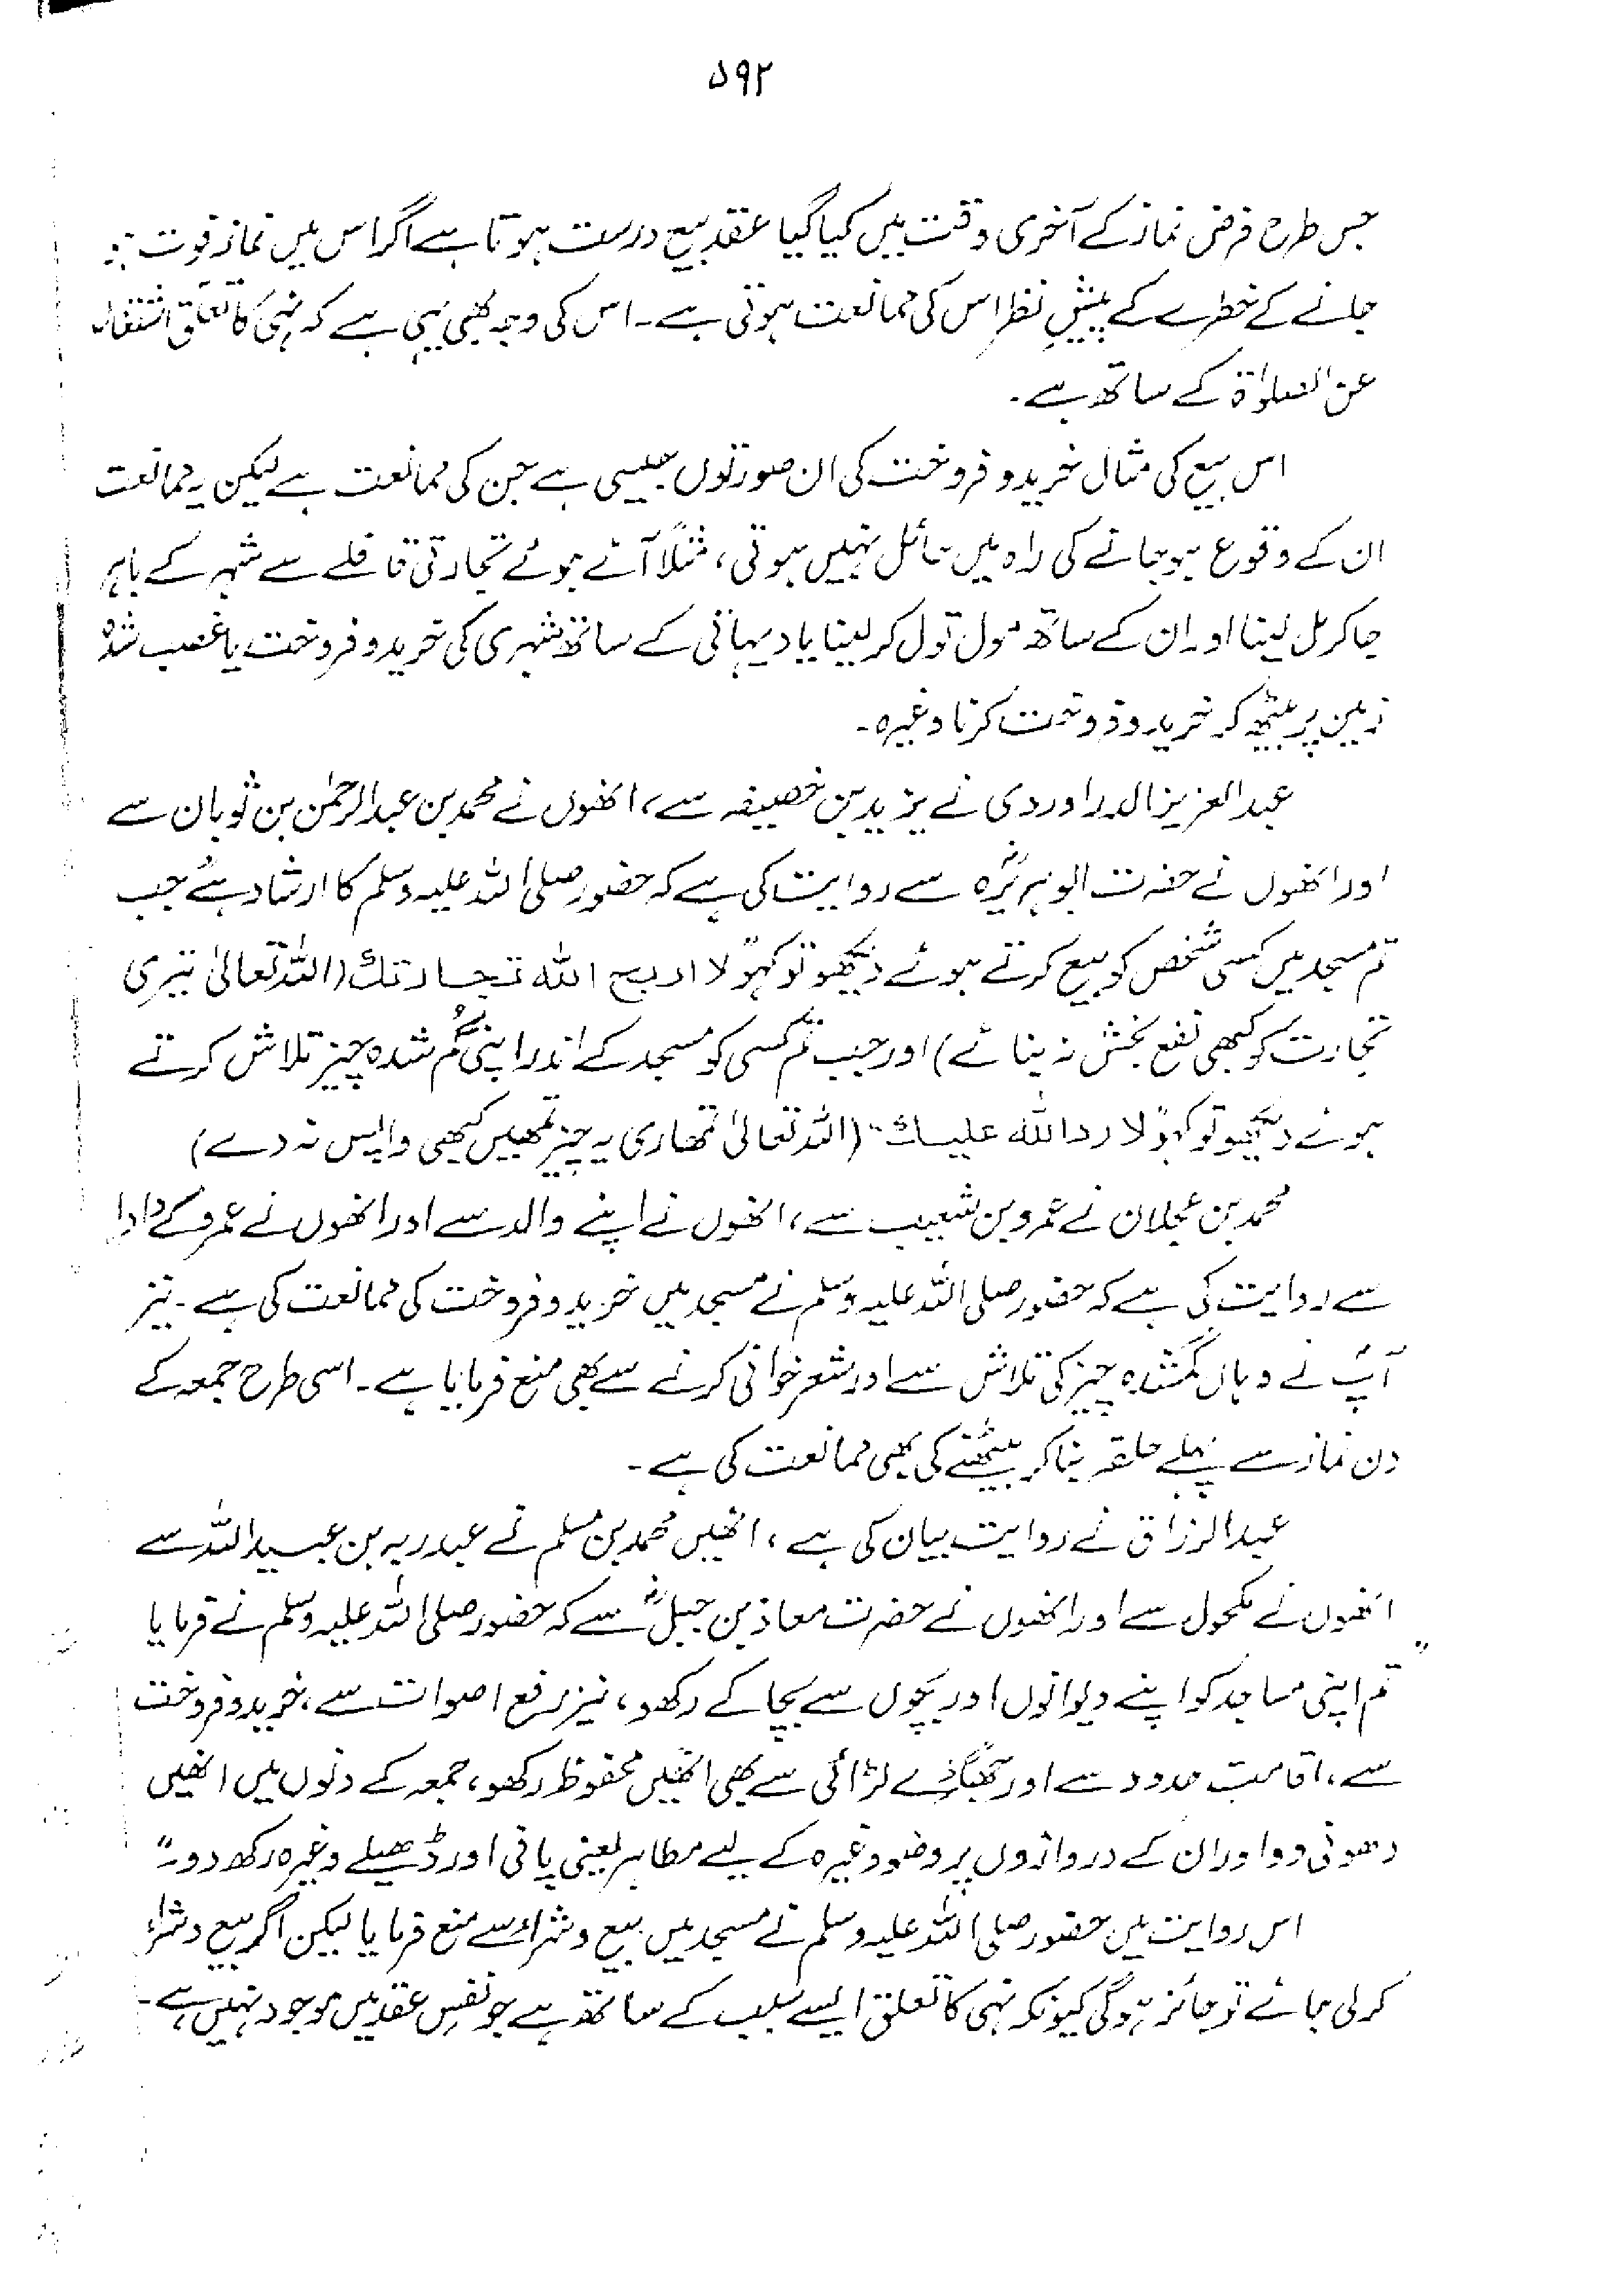 ۵۹۲
جس طرح فرض نماز کے آخری وقت میں کیا گیا عقد بیع درست ہوتا ہے اگر اس میں نماز فوت ہو
جانے کے خطرے کے پیشِ نظر اس کی ممانعت ہوتی ہے۔ اس کی وجہ بھی یہی ہے کہ نہی کا تعلق اشتغال
عن الصلوٰۃ کے ساتھ ہے۔
اس بیع کی مثال خرید و فروخت کی ان صورتوں جیسی ہے جن کی ممانعت ہے لیکن یہ ممانعت
ان کے وقوع ہو جانے کی راہ میں حائل نہیں ہوتی، مثلاً آتے ہوئے تجارتی قافلے سے شہر کے باہر
جا کر مل لینا اور ان کے ساتھ مول تول کر لینا یا دیہاتی کے ساتھ شہری کی خرید و فروخت یا غصب شدہ
زمین پر بیٹھ کر خرید و فروخت کرنا وغیرہ۔
عبدالعزیز الدراوردی نے یزید بن خصیفہ سے، انھوں نے محمد بن عبدالرحمٰن بن ثوبان سے
اور انھوں نے حضرت ابوہریرہؓ سے روایت کی ہے کہ حضور صلی اللہ علیہ وسلم کا ارشاد ہے "جب
تم مسجد میں کسی شخص کو بیع کرتے ہوئے دیکھو تو کہو "لا اربح اللہ تجارتك (اللہ تعالیٰ تیری
تجارت کو کبھی نفع بخش نہ بنائے) اور جب تم کسی کو مسجد کے اندر اپنی گم شدہ چیز تلاش کرتے
ہوئے دیکھو تو کہو "لا رد اللہ علیك" (اللہ تعالیٰ تمھاری یہ چیز تمھیں کبھی واپس نہ دے)
محمد بن عجلان نے عمرو بن شعیب سے، انھوں نے اپنے والد سے اور انھوں نے عمرو کے دادا
سے روایت کی ہے کہ حضور صلی اللہ علیہ وسلم نے مسجد میں خرید و فروخت کی ممانعت کی ہے۔ نیز
آپؐ نے وہاں گمشدہ چیز کی تلاش سے اور شعر خوانی کرنے سے بھی منع فرمایا ہے۔ اسی طرح جمعہ کے
دن نماز سے پہلے حلقہ بنا کر بیٹھنے کی بھی ممانعت کی ہے۔
عبدالرزاق نے روایت بیان کی ہے، انھیں محمد بن مسلم نے عبدربہ بن عبیداللہ سے
انھوں نے مکحول سے اور انھوں نے حضرت معاذ بن جبلؓ سے کہ حضور صلی اللہ علیہ وسلم نے فرمایا
"تم اپنی مساجد کو اپنے دیوانوں اور بچوں سے بچا کے رکھو، نیز رفع اصوات سے، خرید و فروخت
سے، اقامت حدود سے اور جھگڑے لڑائی سے بھی انھیں محفوظ رکھو، جمعہ کے دنوں میں انھیں
دھونی دو اور ان کے دروازوں پر وضو وغیرہ کے لیے مطاہر یعنی پانی اور ڈھیلے وغیرہ رکھ دو۔"
اس روایت میں حضور صلی اللہ علیہ وسلم نے مسجد میں بیع و شراء سے منع فرمایا لیکن اگر بیع و شراء
کر لی جائے تو جائز ہوگی کیونکہ نہی کا تعلق ایسے سبب کے ساتھ ہے جو نفسِ عقد میں موجود نہیں ہے۔